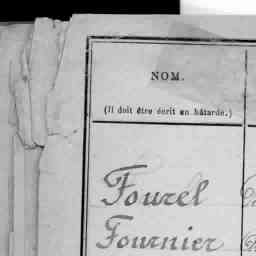 NOM.
(Il doit être écrit en bâtarde.)
Fourel
Fournier